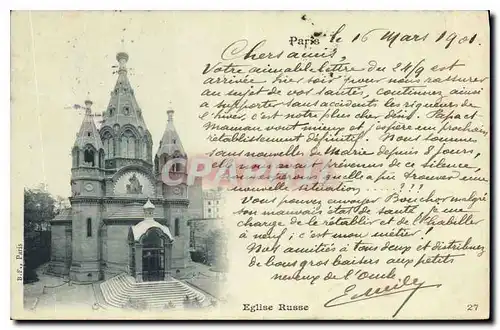 Paris, le 16 Mars 1901.
Chers amis,
Votre aimable lettre du 24/9 est
arrivée hier soir pour nous rassurer
au sujet de vos santés, continuez ainsi
a supporter sans accidents les rigueurs de
l'hiver, c'est notre plus cher désir. Papa et
Maman vont mieux et j'espère un prochain
rétablissement définitif. Nous sommes
sans nouvelle de depuis 8 jours,
et non prévenus de ce silence,
a pu trouver une
nouvelle situation ....???!
Vous pouvez envoyer malgré
son mauvais état de santé je me
charge de le et de l'habiller
à neuf, c'est mon métier!
Nos amitiés à Vous deux et distribuez
de bons gros baisers aux petits
neveux de l'Oncle
Emile
CARTE
B.F., Paris
Eglise Russe
27